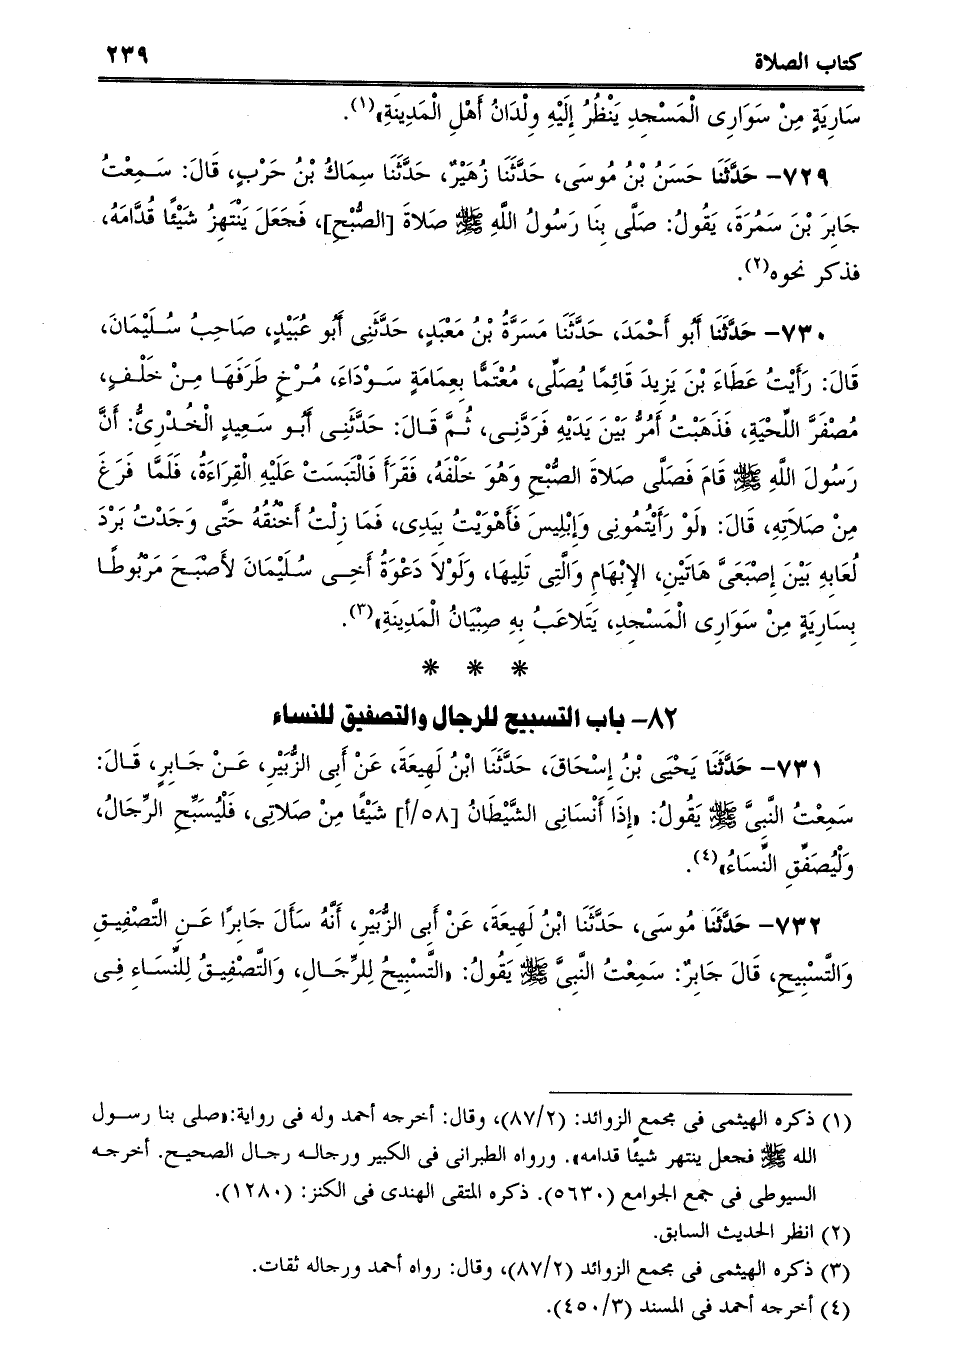 كتاب الصلاة ٢٣٩
سَارِيَةٍ مِنْ سَوَارِى الْمَسْجِدِ يَنْظُرُ إِلَيْهِ وِلْدَانُ أَهْلِ الْمَدِينَةِ»(١).
٧٢٩- حَدَّثَنَا حَسَنُ بْنُ مُوسَى، حَدَّثَنَا زُهَيْرٌ، حَدَّثَنَا سِمَاكُ بْنُ حَرْبٍ، قَالَ: سَمِعْتُ
جَابِرَ بْنَ سَمُرَةَ، يَقُولُ: صَلَّى بِنَا رَسُولُ اللَّهِ ﷺ صَلاةَ [الصُّبْحِ]، فَجَعَلَ يَنْتَهِزُ شَيْئًا قُدَّامَهُ،
فذكر نحوه(٢).
٧٣٠- حَدَّثَنَا أَبُو أَحْمَدَ، حَدَّثَنَا مَسَرَّةُ بْنُ مَعْبَدٍ، حَدَّثَنِى أَبُو عُبَيْدٍ، صَاحِبُ سُلَيْمَانَ،
قَالَ: رَأَيْتُ عَطَاءَ بْنَ يَزِيدَ قَائِمًا يُصَلِّى، مُعْتَمًّا بِعِمَامَةٍ سَوْدَاءَ، مُرْخٍ طَرَفَهَا مِنْ خَلْفٍ،
مُصْفَرَّ اللِّحْيَةِ، فَذَهَبْتُ أَمُرُّ بَيْنَ يَدَيْهِ فَرَدَّنِى، ثُمَّ قَالَ: حَدَّثَنِى أَبُو سَعِيدٍ الْخُدْرِىُّ: أَنَّ
رَسُولَ اللَّهِ ﷺ قَامَ فَصَلَّى صَلاةَ الصُّبْحِ وَهُوَ خَلْفَهُ، فَقَرَأَ فَالْتَبَسَتْ عَلَيْهِ الْقِرَاءَةُ، فَلَمَّا فَرَغَ
مِنْ صَلاتِهِ، قَالَ: «لَوْ رَأَيْتُمُونِى وَإِبْلِيسَ فَأَهْوَيْتُ بِيَدِى، فَمَا زِلْتُ أَخْنُقُهُ حَتَّى وَجَدْتُ بَرْدَ
لُعَابِهِ بَيْنَ إِصْبَعَىَّ هَاتَيْنِ، الإِبْهَامِ وَالَّتِى تَلِيهَا، وَلَوْلاَ دَعْوَةُ أَخِى سُلَيْمَانَ لأَصْبَحَ مَرْبُوطًا
بِسَارِيَةٍ مِنْ سَوَارِى الْمَسْجِدِ، يَتَلاعَبُ بِهِ صِبْيَانُ الْمَدِينَةِ»(٣).
* * *
٨٢- باب التسبيح للرجال والتصفيق للنساء
٧٣١- حَدَّثَنَا يَحْيَى بْنُ إِسْحَاقَ، حَدَّثَنَا ابْنُ لَهِيعَةَ، عَنْ أَبِى الزُّبَيْرِ، عَنْ جَابِرٍ، قَالَ:
سَمِعْتُ النَّبِىَّ ﷺ يَقُولُ: «إِذَا أَنْسَانِى الشَّيْطَانُ [٥٨/أ] شَيْئًا مِنْ صَلاتِى، فَلْيُسَبِّحِ الرِّجَالُ،
وَلْيُصَفِّقِ النِّسَاءُ»(٤).
٧٣٢- حَدَّثَنَا مُوسَى، حَدَّثَنَا ابْنُ لَهِيعَةَ، عَنْ أَبِى الزُّبَيْرِ، أَنَّهُ سَأَلَ جَابِرًا عَنِ التَّصْفِيقِ
وَالتَّسْبِيحِ، قَالَ جَابِرٌ: سَمِعْتُ النَّبِىَّ ﷺ يَقُولُ: «التَّسْبِيحُ لِلرِّجَالِ، وَالتَّصْفِيقُ لِلنِّسَاءِ فِى
(١) ذكره الهيثمى فى مجمع الزوائد: (٨٧/٢)، وقال: أخرجه أحمد وله فى رواية:«صلى بنا رسول
الله ﷺ فجعل ينتهر شيئًا قدامه». ورواه الطبرانى فى الكبير ورجاله رجال الصحيح. أخرجه
السيوطى فى جمع الجوامع (٥٦٣٠). ذكره المتقى الهندى فى الكنز: (١٢٨٠).
(٢) انظر الحديث السابق.
(٣) ذكره الهيثمى فى مجمع الزوائد (٨٧/٢)، وقال: رواه أحمد ورجاله ثقات.
(٤) أخرجه أحمد فى المسند (٤٥٠/٣).